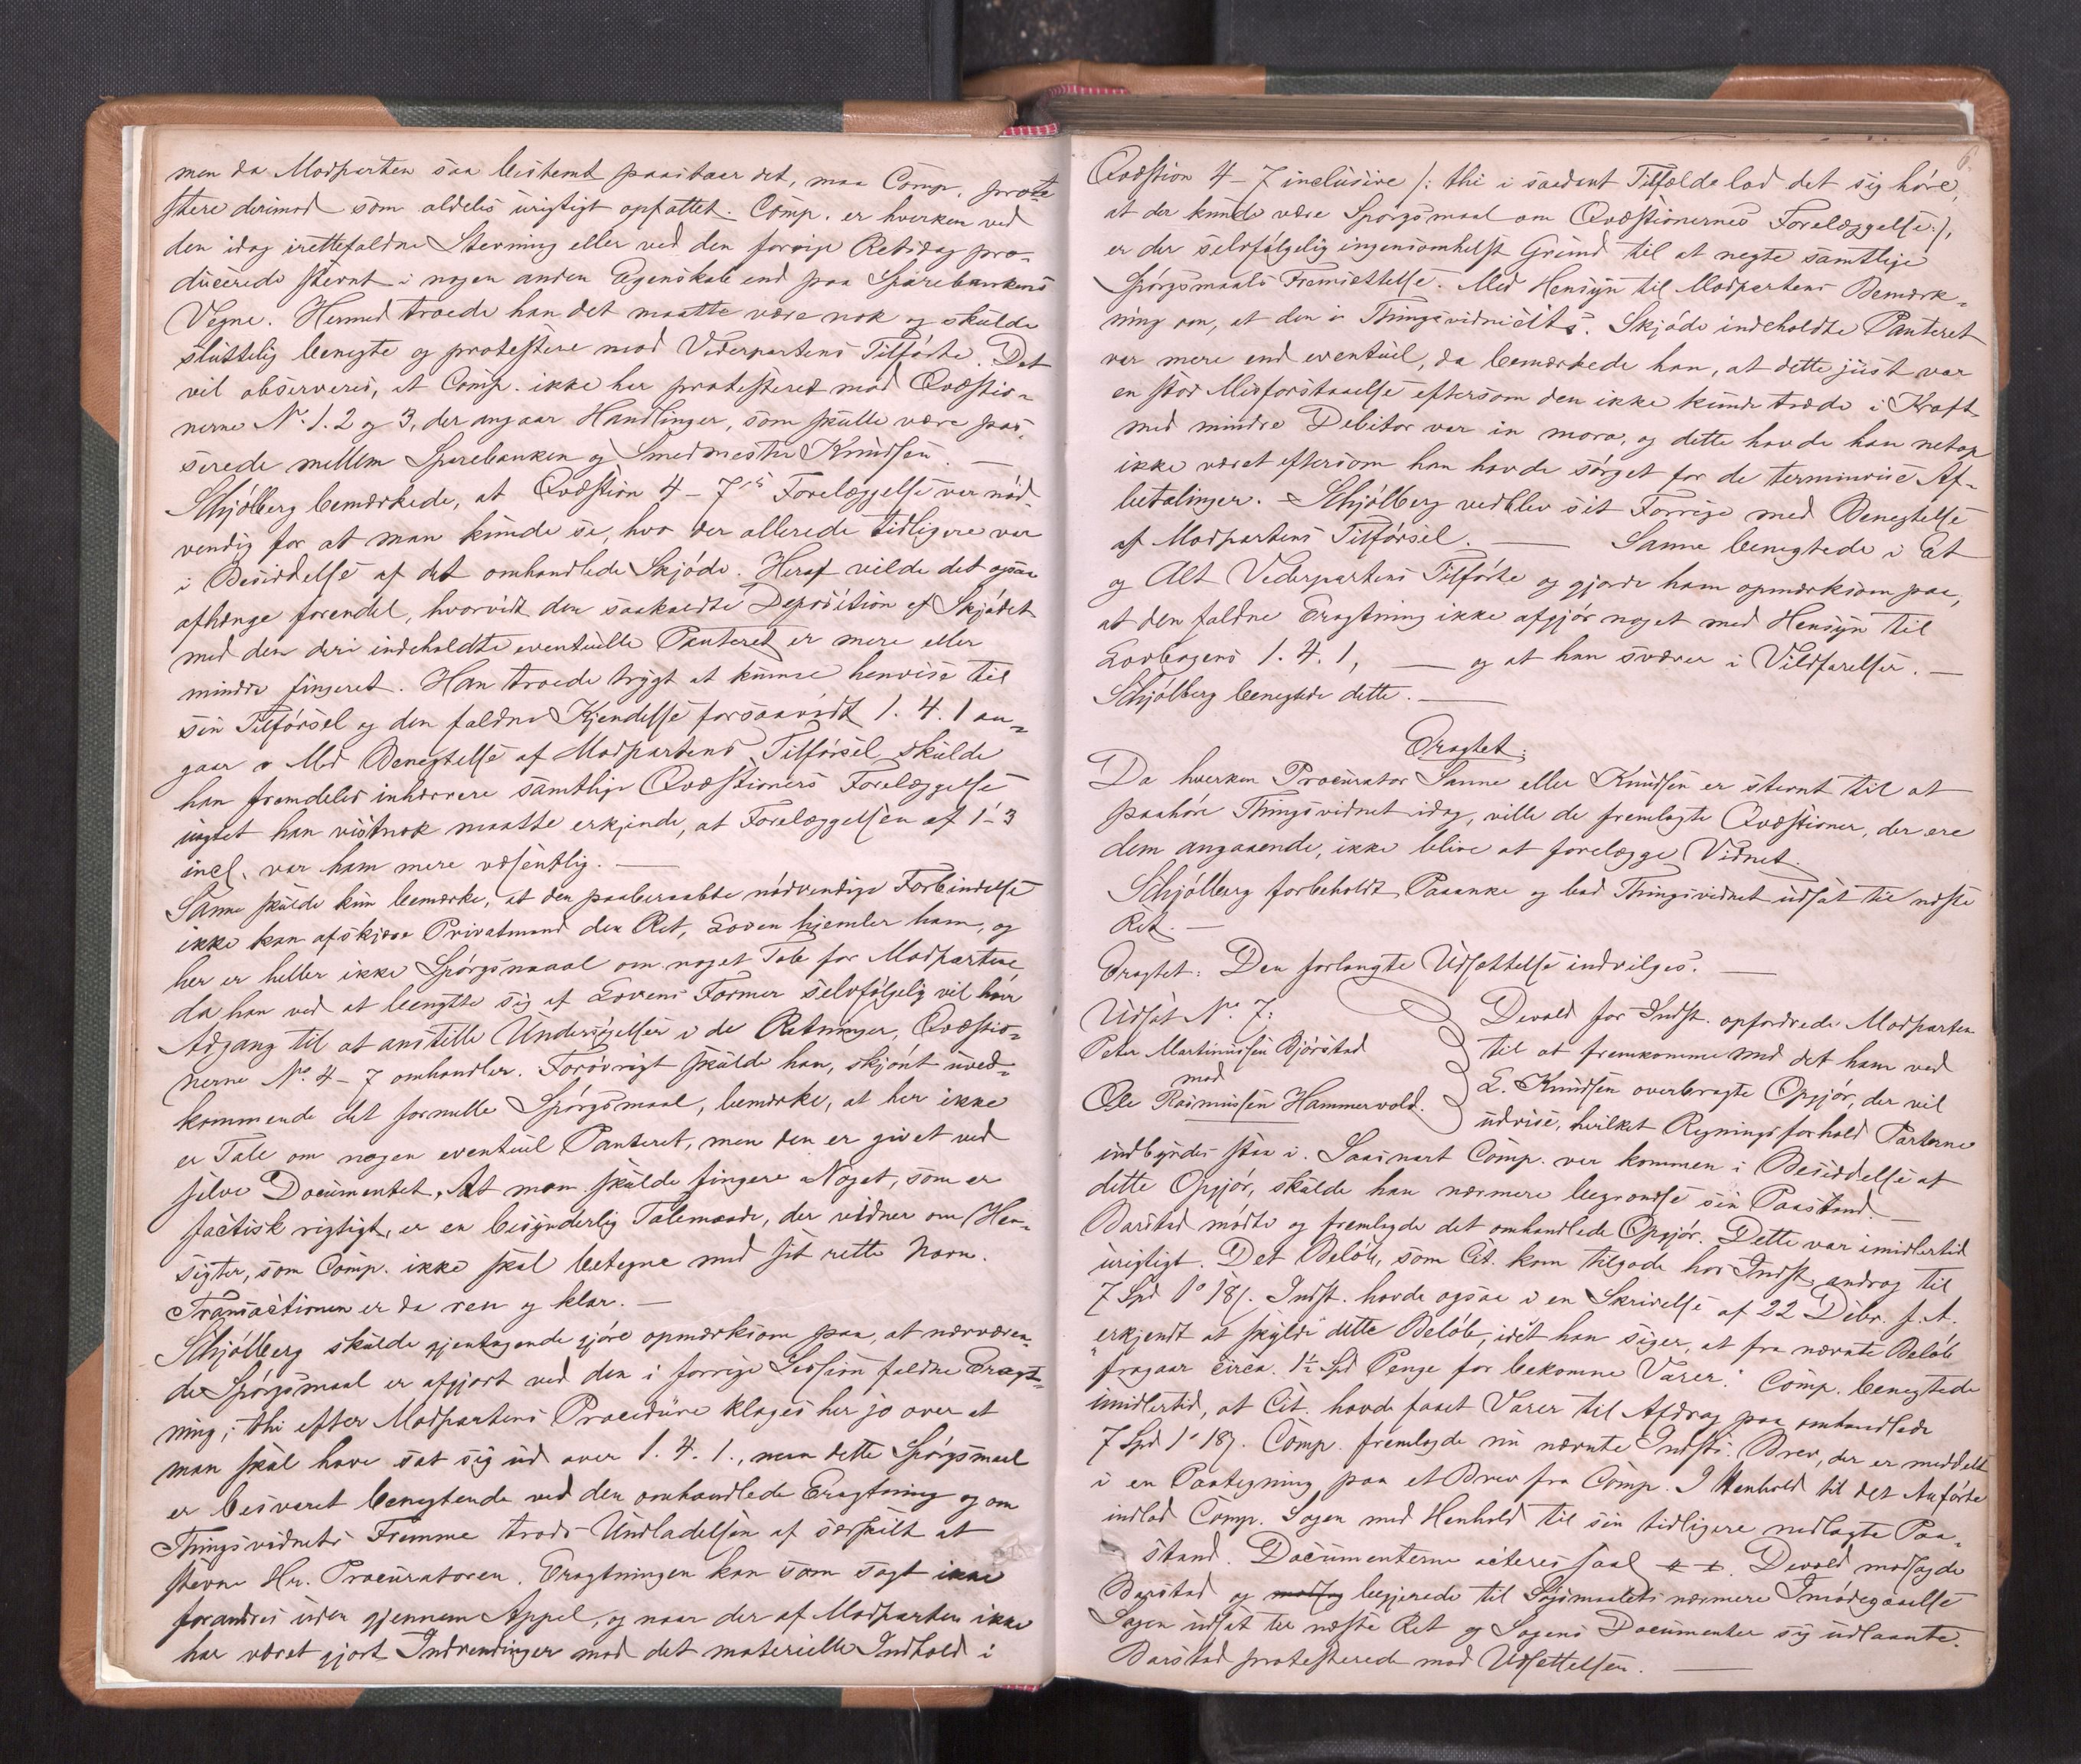 men da Modparten saa bestemt paastaaer det, maa Comp. prote-
stere derimod som aldeles urigtigt opfattet. Comp. er hverken ved
den idag irettefaldne Stevning eller ved den forrige Retsdag pro-
ducerede stevnt i nogen anden Egenskab end paa Sparebankens
Vegne. Hermed troede han det maatte være nok og skulde
sluttelig benegte og protestere mod Vederpartens Tilførte. Det
vil observeres, at Comp. ikke har protesteret mod Qvæstio-
nerne No 1. 2 og 3, der angaar Handlinger, som skulle være pas-
serede mellem Sparebanken og Smedmester Knudsen. —
Schjølberg bemærkede, at Qvæstion 4 – 7's Forelæggelse var nød-
vendig for at man kunde se, hvo der allerede tidligere var
i Besiddelse af det omhandlede Skjøde. Heraf vilde det ogsaa
afhænge forendel, hvorvidt den saakaldte Deposition af Skjødet
med den deri indeholdte eventuelle Panteret er mere eller
mindre fingeret. Han troede trygt at kunne henvise til
sin Tilførsel og den faldne Kjendelse forsaavidt 1. 4. 1 an-
gaar. Med Benegtelse af Modpartens Tilførsel skulde
han fremdeles inhærere samtlige Qvæstioners Forelæggelse
uagtet han vistnok maatte erkjende, at Forelæggelsen af 1-3
incl. var ham mere væsentlig. —
Sanne skulde kun bemærke, at den paaberaabte nødvendige Forbindelse
ikke kan afskjære Privatmand den Ret, Loven hjemler ham, og
her er heller ikke Spørgsmaal om noget Tab for Modparten
da han ved at benytte sig af Lovens Former selvfølgelig vil have
Adgang til at anstille Undersøgelser i de Retninger, Qvæstio-
nerne No. 4 – 7 omhandler. Forøvrigt skulde han, skjønt uved-
kommende det formelle Spørgsmaal, bemærke, at her ikke
er Tale om nogen eventuel Panteret, men den er givet ved
selve Documentet. At man skulde fingere Noget, som er
factisk rigtigt, er en besynderlig Talemaade, der vidner om Hen-
sigter, som Comp. ikke skal betegne med sit rette Navn.
Transactionen er da ren og klar. —
Schjølberg skulde gjentagende gjøre opmærksom paa, at nærværen-
de Spørgsmaal er afgjort ved den i forrige Session faldne Eragt-
ning; thi efter Modpartens Procedure klages her jo over at
man skal have sat sig ud over 1. 4. 1., men dette Spørgsmaal
er besvaret benegtende ved den omhandlede Eragtning og om
Thingsvidnets Fremme trods Undladelsen af særskilt at
stevne Hr. Procuratoren. Eragtningen kan som sagt ikke
forandres uden gjennem Appel, og naar der af Modparten ikke
har været gjort Indvendinger mod det materielle Indhold i
6.
Qvæstion 4 – 7 inclusive /: thi i saadant Tilfælde lod det sig høre,
at der kunde være Spørgsmaal om Qvæstionernes Forelæggelse :/,
er der selvfølgelig ingensomhelst Grund til at negte samtlige
Spørgsmaals Fremsættelse. Med Hensyn til Modpartens Bemærk-
ning om, at den i Skjøde indeholdte Panteret
var mere end eventuel, da bemærkede han, at dette just var
en stor Misforstaaelse eftersom den ikke kunde træde i Kraft
med mindre Debitor var in mora, og dette havde han netop
ikke været eftersom han havde sørget for de terminvise Af-
betalinger. – Schjølberg vedblev sit Forrige med Benegtelse
af Modpartens Tilførsel. — Sanne benegtede i Et
og Alt Vederpartens Tilførte og gjorde ham opmærksom paa,
at den faldne Eragtning ikke afgjør noget med Hensyn til
Lovbogens 1. 4. 1, — og at han svæver i Vildfarelse. —
Schjølberg benegtede dette. —
Eragtet:
Da hverken Procurator Sanne eller Knudsen er stevnt til at
paahøre Thingsvidnet idag, ville de fremlagte Qvæstioner, der ere
dem angaaende, ikke blive at forelægge Vidnet.
Schjølberg forbeholdt Paaanke og bad Thingsvidnet udsat til næste
Ret. —
Eragtet: Den forlangte Udsættelse indvilges. —
Udsat No. 7:
Peter Martinussen Bjørstad
mod
Ole Rasmussen Hammervold.
Devold for Indst. opfordrede Modparten
til at fremkomme med det ham ved
L. Knudsen overbragte Opgjør, der vil
udvise, hvilket Regningsforhold Parterne
indbyrdes staa i. Saasnart Comp. var kommen i Besiddelse af
dette Opgjør, skulde han nærmere begrunde sin Paastand. —
Barstad mødte og fremlagde det omhandlede Opgjør. Dette var imidlertid
urigtigt. Det Beløb, som Cit. kom tilgode hos Indst. androg til
7 Spd 1 18/. Indst. havde ogsaa i en Skrivelse af 22 Debr. f. A.
"erkjendt at skylde dette Beløb, idet han siger, at fra nævnte Beløb
fragaar circa. 1½ Spd Penge for bekomne Varer." Comp. benegtede
imidlertid, at Cit. havde faaet Varer til Afdrag paa omhandlede
7 Spd 1 18/. Comp. fremlagde nu nævnte Indsts. Brev, der er meddelt
i en Paategning paa et Brev fra Comp. I Henhold til det Anførte
indlod Comp. Sagen med Henhold til sin tidligere nedlagte Paa-
stand. Documenterne acteres saal. Devold modsagde
Barstad og begjerede til Søgsmaalets nærmere Imødegaaelse
Sagen udsat til næste Ret og Sagens Documenter sig udlaante.
Barstad protesterede mod Udsættelsen. —